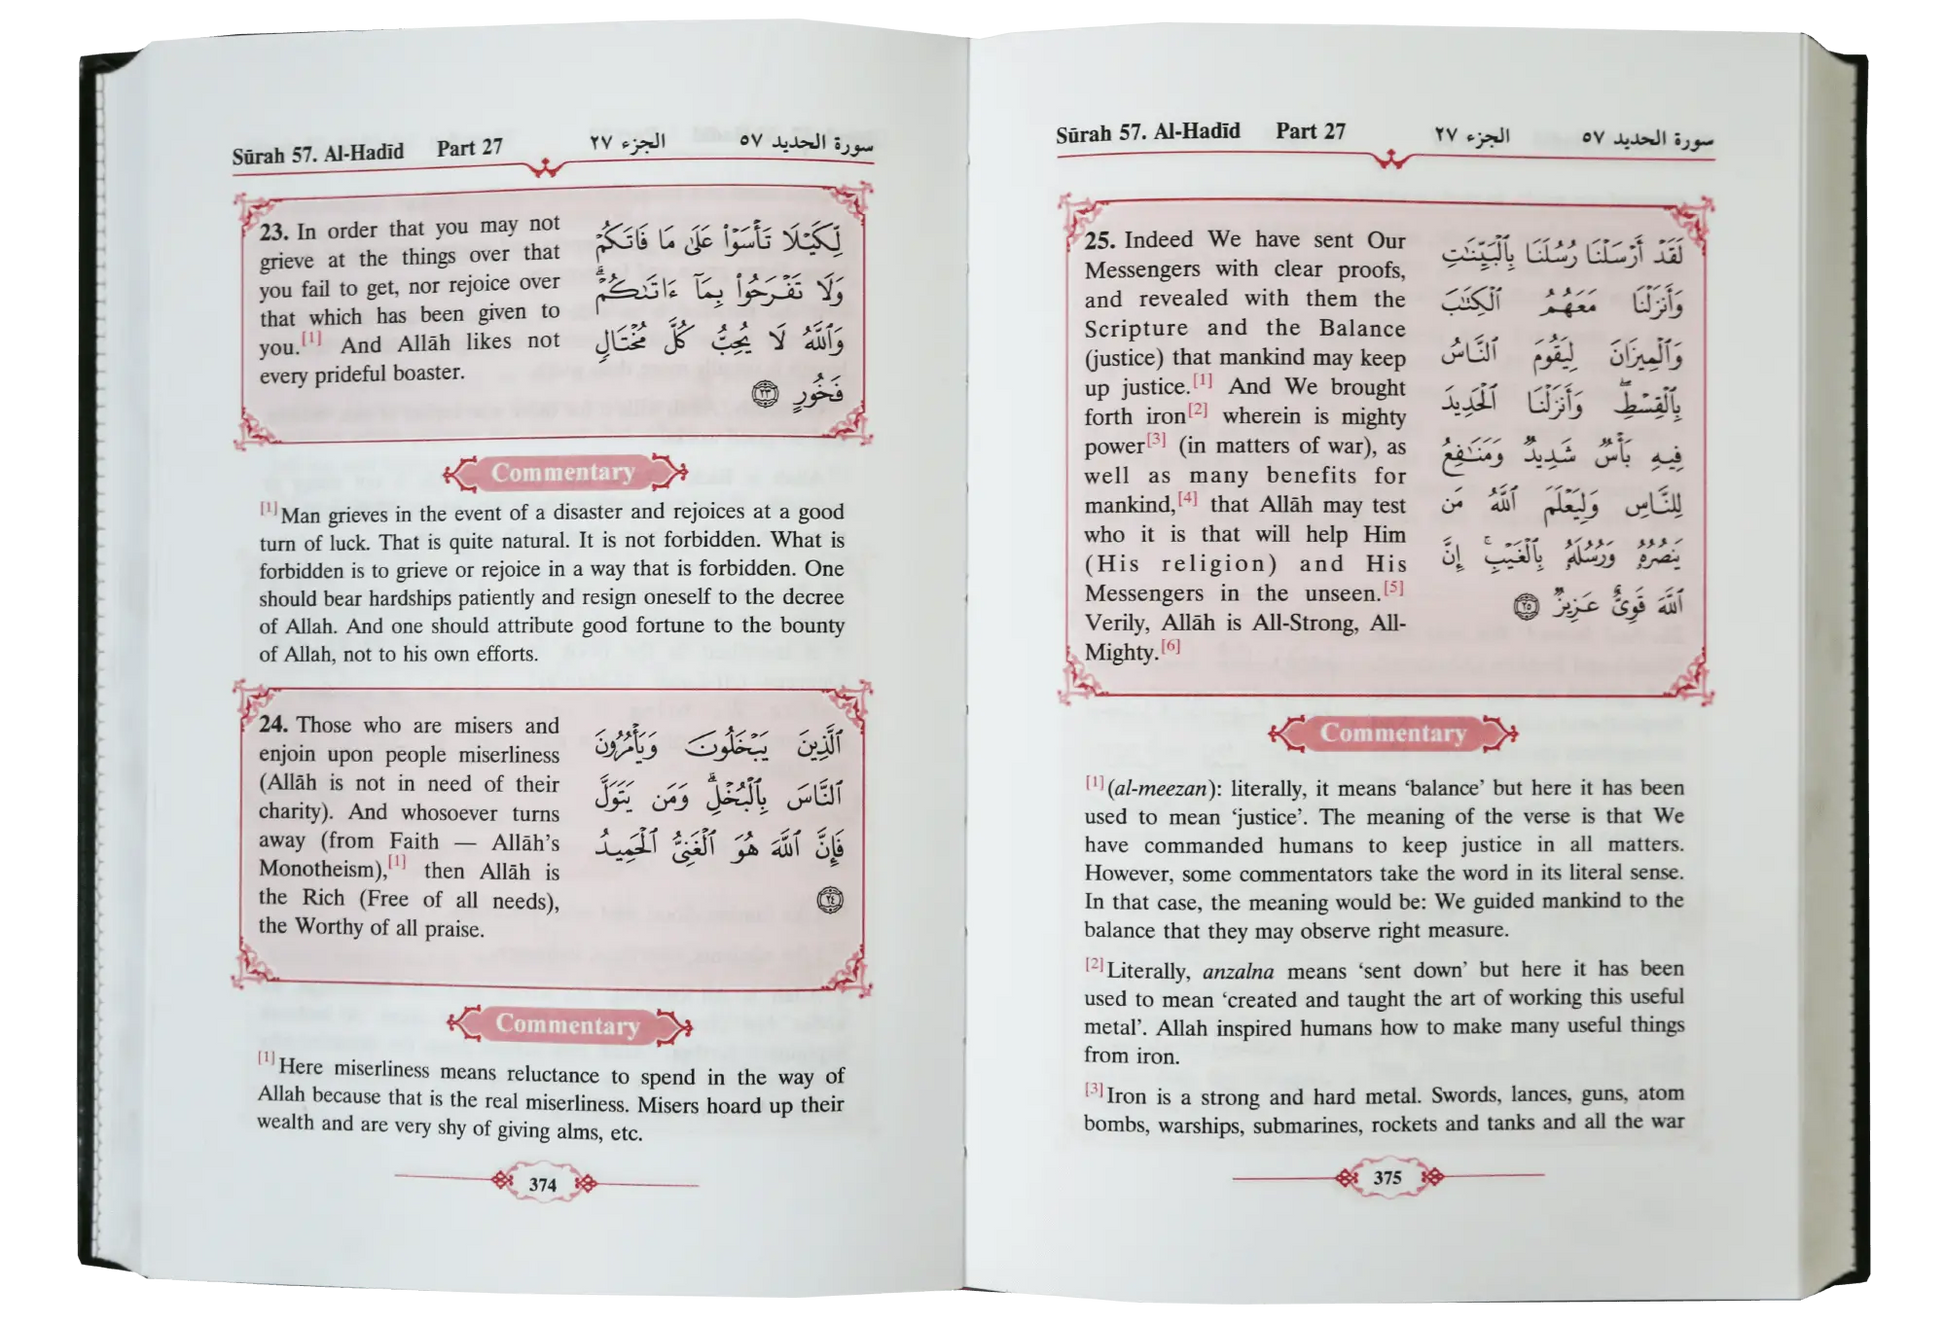 Sūrah 57. Al-Hadīd Part 27 الجزء ٢٧ سورة الحديد ٥٧
23. In order that you may not
grieve at the things over that
you fail to get, nor rejoice over
that which has been given to
you.[1] And Allāh likes not
every prideful boaster.
لِّكَيْلَا تَأْسَوْا۟ عَلَىٰ مَا فَاتَكُمْ
وَلَا تَفْرَحُوا۟ بِمَآ ءَاتَىٰكُمْ ۗ
وَٱللَّهُ لَا يُحِبُّ كُلَّ مُخْتَالٍ
فَخُورٍ ٢٣
Commentary
[1]Man grieves in the event of a disaster and rejoices at a good
turn of luck. That is quite natural. It is not forbidden. What is
forbidden is to grieve or rejoice in a way that is forbidden. One
should bear hardships patiently and resign oneself to the decree
of Allah. And one should attribute good fortune to the bounty
of Allah, not to his own efforts.
24. Those who are misers and
enjoin upon people miserliness
(Allāh is not in need of their
charity). And whosoever turns
away (from Faith — Allāh’s
Monotheism),[1] then Allāh is
the Rich (Free of all needs),
the Worthy of all praise.
ٱلَّذِينَ يَبْخَلُونَ وَيَأْمُرُونَ
ٱلنَّاسَ بِٱلْبُخْلِ ۗ وَمَن يَتَوَلَّ
فَإِنَّ ٱللَّهَ هُوَ ٱلْغَنِىُّ ٱلْحَمِيدُ
٢٤
Commentary
[1]Here miserliness means reluctance to spend in the way of
Allah because that is the real miserliness. Misers hoard up their
wealth and are very shy of giving alms, etc.
374
Sūrah 57. Al-Hadīd Part 27 الجزء ٢٧ سورة الحديد ٥٧
25. Indeed We have sent Our
Messengers with clear proofs,
and revealed with them the
Scripture and the Balance
(justice) that mankind may keep
up justice.[1] And We brought
forth iron[2] wherein is mighty
power[3] (in matters of war), as
well as many benefits for
mankind,[4] that Allāh may test
who it is that will help Him
(His religion) and His
Messengers in the unseen.[5]
Verily, Allāh is All-Strong, All-
Mighty.[6]
لَقَدْ أَرْسَلْنَا رُسُلَنَا بِٱلْبَيِّنَٰتِ
وَأَنزَلْنَا مَعَهُمُ ٱلْكِتَٰبَ
وَٱلْمِيزَانَ لِيَقُومَ ٱلنَّاسُ
بِٱلْقِسْطِ ۖ وَأَنزَلْنَا ٱلْحَدِيدَ
فِيهِ بَأْسٌ شَدِيدٌ وَمَنَٰفِعُ
لِلنَّاسِ وَلِيَعْلَمَ ٱللَّهُ مَن
يَنصُرُهُۥ وَرُسُلَهُۥ بِٱلْغَيْبِ ۚ إِنَّ
ٱللَّهَ قَوِىٌّ عَزِيزٌ ٢٥
Commentary
[1](al-meezan): literally, it means ‘balance’ but here it has been
used to mean ‘justice’. The meaning of the verse is that We
have commanded humans to keep justice in all matters.
However, some commentators take the word in its literal sense.
In that case, the meaning would be: We guided mankind to the
balance that they may observe right measure.
[2]Literally, anzalna means ‘sent down’ but here it has been
used to mean ‘created and taught the art of working this useful
metal’. Allah inspired humans how to make many useful things
from iron.
[3]Iron is a strong and hard metal. Swords, lances, guns, atom
bombs, warships, submarines, rockets and tanks and all the war
375